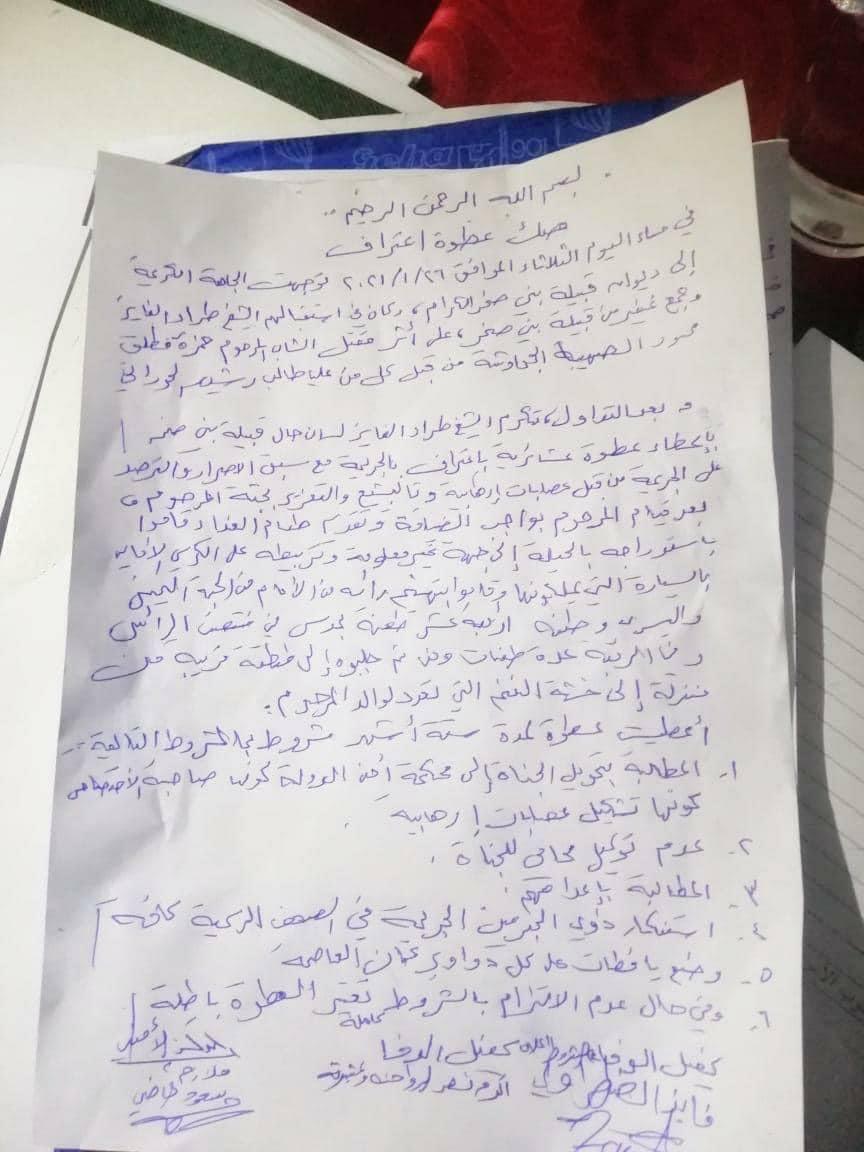 بسم الله الرحمن الرحيم ..
صك عطوة اعتراف
في مساء اليوم الثلاثاء الموافق ٢٠٢١/١/٢٦ توجهت الجاهة الكريمة
إلى ديوان قبيلة بني صخر الكرام، وكان في استقبالهم الشيخ طراد الفايز
وجمع غفير من قبيلة بني صخر، على أثر مقتل الشاب المرحوم حمزة مطلق
من قبل كل من
و بعد التداول، تكرم الشيخ طراد الفايز لسان حال قبيلة بني صخر
بإعطاء عطوة عشائرية بإعتراف بالجريمة مع سبق الاصرار والترصد
على الجريمة من قبل عصابات إرهابية بجثة المرحوم
بعد قيام المرحوم بواجب الضيافة وتقديم طعام الغداء قاموا
باستدراجه بالحيلة إلى جهة غير معلومة وتربيطه على الكرسي
بالسيارة التي يملكونها وقاموا بتهشيم رأسه من الأمام من الجهة اليمنى
واليسرى وطعنه اربعة عشر طعنة بموس في منتصف الرأس
وفي الرقبة عدة طعنات ومن ثم جلبوه إلى منطقة قريبة من
منزله إلى التي تعود لوالد المرحوم.
أعطيت عطوة لمدة ستة أشهر مشروط بالشروط التالية :-
١- المطالبة بتحويل الجناة إلى محكمة أمن الدولة كونها صاحبة الأختصاص
كونها تشكيل عصابات إرهابية.
٢- عدم توكيل محامي للجناة.
٣- المطالبة بإعدامهم.
٤- استنكار ذوي المجرمين الجريمة في الصحف الرسمية كافة
٥- وضع يافطات على كل دواوير عمان العاصمة
٦- وفي حال عدم الالتزام بالشروط كاملة تعتبر العطوة باطلة
كفيل الوفا
كفيل الدفا
فايز